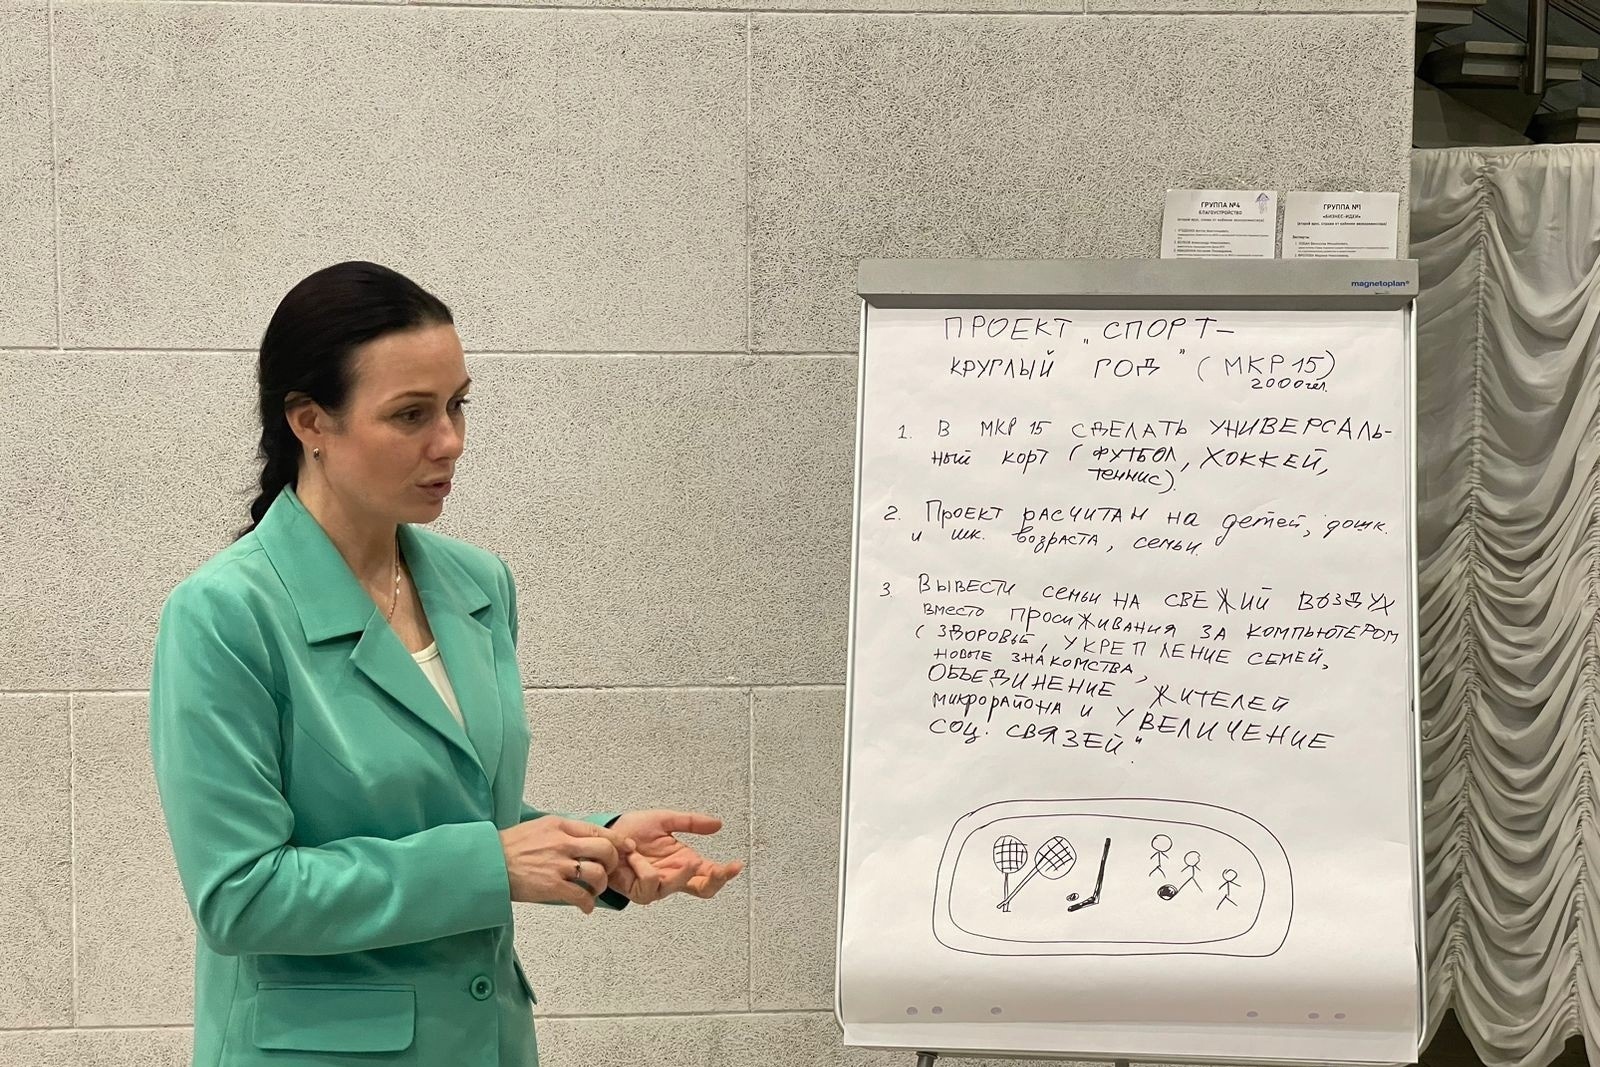 ГРУППА №4
БЛАГОУСТРОЙСТВО
ГРУППА №1
«БИЗНЕС-ИДЕИ»
Эксперты:
magnetoplan®
ПРОЕКТ „СПОРТ–
КРУГЛЫЙ ГОД" (МКР 15)
2000 чел.
1. В МКР 15 СДЕЛАТЬ УНИВЕРСАЛЬ-
НЫЙ КОРТ (ФУТБОЛ, ХОККЕЙ,
теннис).
2. Проект РАСЧИТАН НА детей, дошк.
и шк. возраста, семьи.
3. ВЫВЕСТИ семьи НА СВЕЖИЙ ВОЗДУХ
вместо ПРОСИЖИВАНИЯ ЗА КОМПЬЮТЕРОМ
(ЗДОРОВЬЕ, УКРЕПЛЕНИЕ СЕМЕЙ,
НОВЫЕ ЗНАКОМСТВА,
ОБЪЕДИНЕНИЕ ЖИТЕЛЕЙ
микрорайона и УВЕЛИЧЕНИЕ
СОЦ. СВЯЗЕЙ".